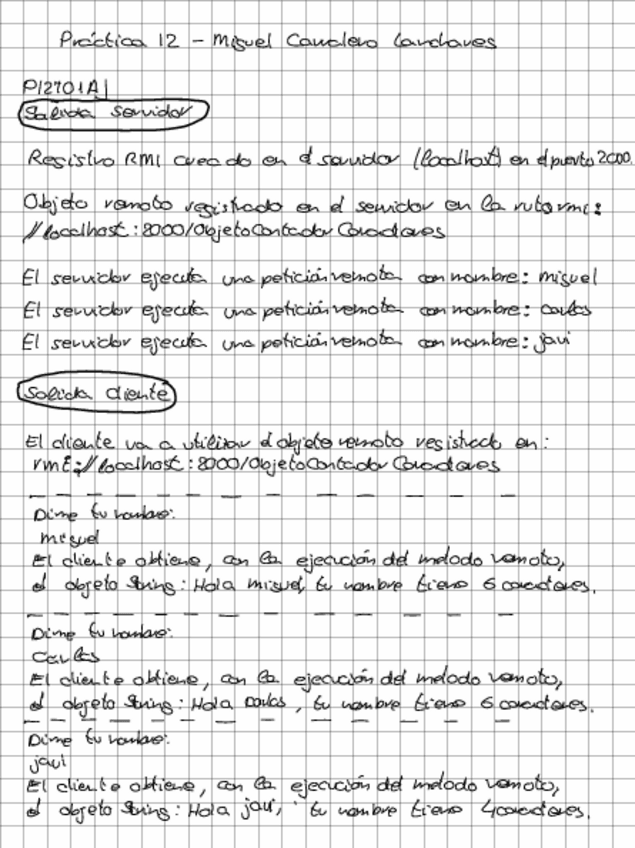 Práctica 12 - Miguel Candelero Landares
P12701A
Salida servidor
Registro RMI creado en el servidor (localhost) en el puerto 2000.
Objeto remoto registrado en el servidor en la ruta rmi:
//localhost:2000/ObjetoContadorCaracteres
El servidor ejecuta una petición remota con nombre: miguel
El servidor ejecuta una petición remota con nombre: carlos
El servidor ejecuta una petición remota con nombre: javi
Salida cliente
El cliente va a utilizar el objeto remoto registrado en:
rmi://localhost:2000/ObjetoContadorCaracteres
Dime tu nombre:
miguel
El cliente obtiene, con la ejecución del metodo remoto,
el objeto String: Hola miguel, tu nombre tiene 6 caracteres.
Dime tu nombre:
carlos
El cliente obtiene, con la ejecución del metodo remoto,
el objeto String: Hola carlos, tu nombre tiene 6 caracteres.
Dime tu nombre:
javi
El cliente obtiene, con la ejecución del metodo remoto,
el objeto String: Hola javi, tu nombre tiene 4 caracteres.